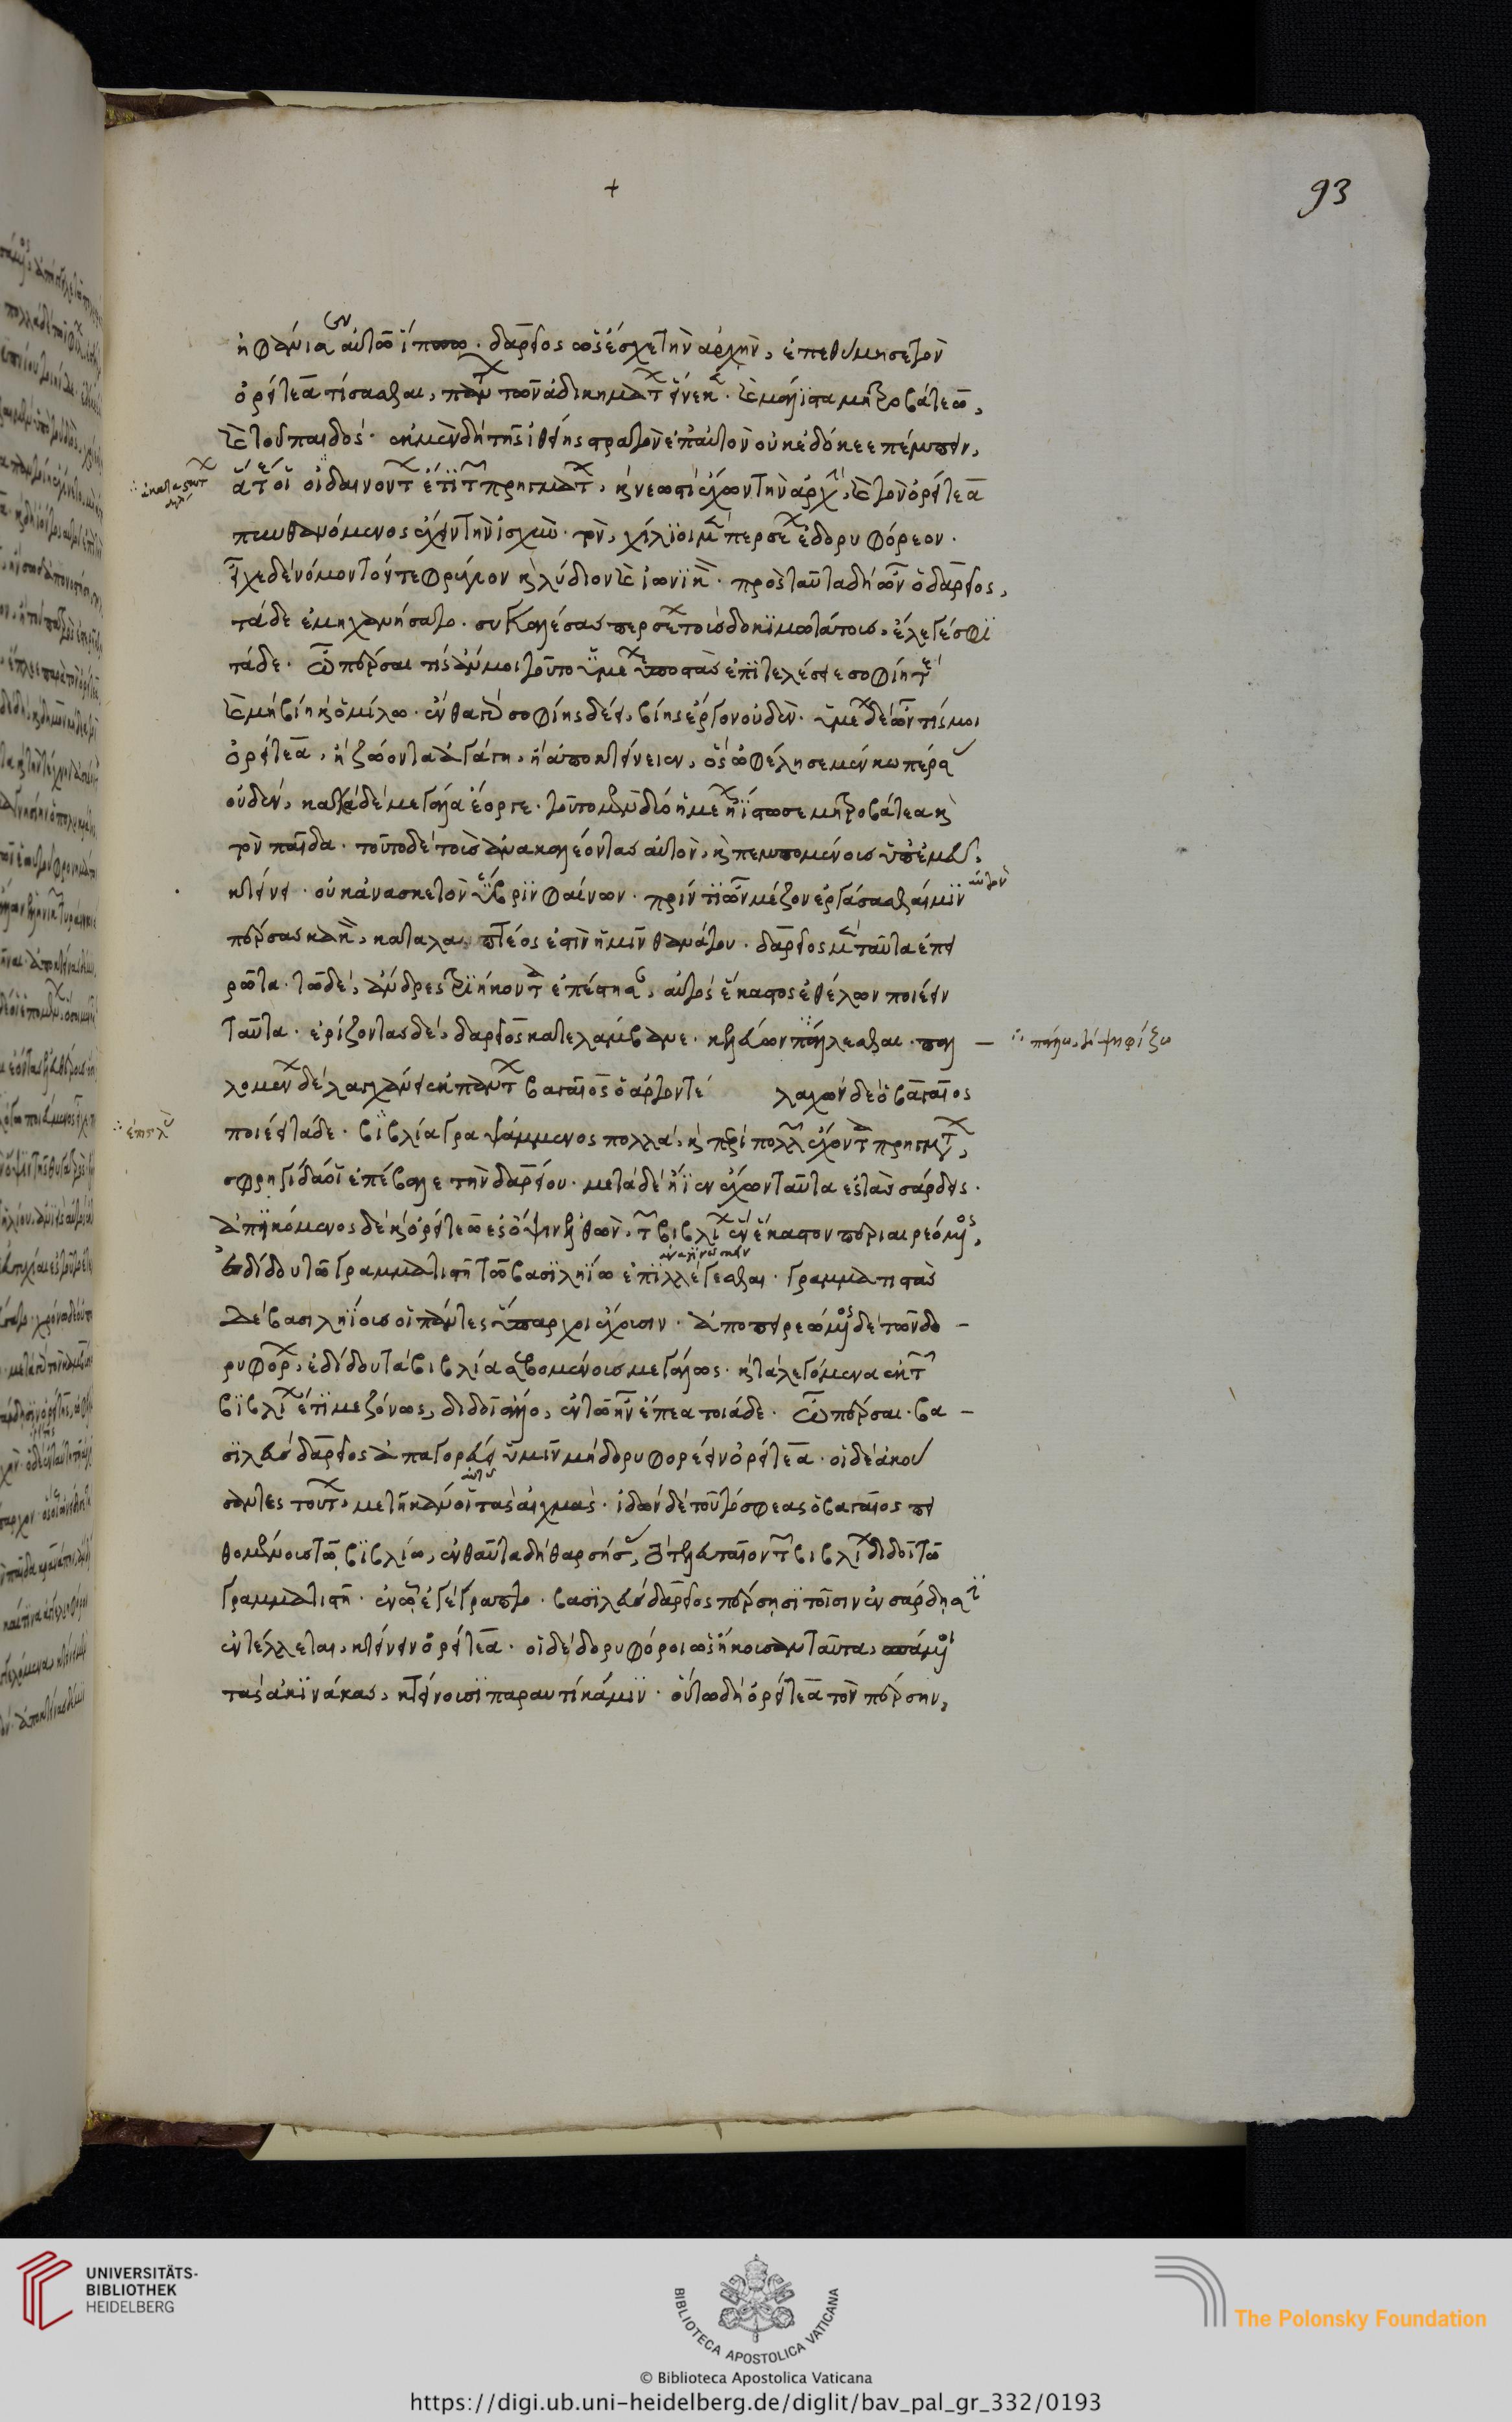 +
93
ἠφάνισεν αὐτῶ ἵππω. δαρεῖος ὡς ἔσχε τὴν ἀρχὴν, ἐπεθύμησε τὸν
ὀροίτεα τίσασθαι, πάντων τῶν ἀδικημάτων εἵνεκεν. καὶ μάλιστα μητροβάτεω,
καὶ τοῦ παιδός. ἐκ μὲν δὴ τῆς ἰθείης στρατὸν ἐπ' αὐτὸν οὐκ ἐδόκεε πέμπειν,
ἅτε οἱ οἰδαινόντων ἔτι τῶν πρηγμάτων, καὶ νεωστὶ ἔχων τὴν ἀρχὴν, καὶ τὸν ὀροίτεα
πυνθανόμενος ἔχειν τὴν ἰσχὺν. τὸν, χίλιοι μὲν περσέων ἐδορυφόρεον.
εἶχε δὲ νόμον τόν τε φρύγιον καὶ λύδιον καὶ ἰωνικὸν. πρὸς ταῦτα δὴ ὧν ὁ δαρεῖος,
τάδε ἐμηχανήσατο. συγκαλέσας περσέων τοὺς δοκιμωτάτους, ἔλεγέ σφι
τάδε. ὦ πέρσαι τίς ἄν μοι τοῦτο ὑμέων ὑποστὰς ἐπιτελέσειε σοφίη τε
καὶ μὴ βίη καὶ ὁμίλω. ἔνθα γὰρ σοφίης δεῖ, βίης ἔργον οὐδὲν. ὑμέων δὲ ὧν τίς μοι
ὀροίτεα, ἢ ζώοντα ἀγάγη, ἢ ἀποκτείνειεν, ὃς ὠφέλησε μέν κω πέρσας
οὐδὲν, κακὰ δὲ μεγάλα ἔοργε. τοῦτο μὲν δύο ἡμέων ἠΐστωσε μητροβάτεα καὶ
τὸν παῖδα. τοῦτο δὲ τοὺς ἀνακαλέοντας αὐτὸν, καὶ πεμπομένους ὑπ' ἐμεῦ,
κτείνει. οὐκ ἀνασχετὸν ὕβριν φαίνων. πρίν τι ὧν μέζον ἐργάσασθαί μιν αὐτὸν
πέρσας κακὸν, καταλαμπτέος ἐστὶν ἡμῖν θανάτου. δαρεῖος μὲν ταῦτα ἐπει
ρῶτα. τῶ δὲ, ἄνδρες τριήκοντα ὑπέστησαν, αὐτὸς ἕκαστος ἐθέλων ποιέειν
ταῦτα. ἐρίζοντας δὲ, δαρεῖος κατελάμβανε. κελεύων πάλλεσθαι. παλ –
∴ πάλλω, τὸ ψηφίζω
λομένων δὲ λαγχάνει ἐκ πάντων βαγαῖος ὁ ἀρτόντεω λαχὼν δὲ ὁ βαγαῖος
ποιέει τάδε. βιβλία γραψάμενος πολλὰ, καὶ περὶ πολλῶν ἔχοντα πρηγμάτων,
σφρηγῖδά οἱ ἐπέβαλε τὴν δαρείου. μετὰ δὲ ἤϊεν ἔχων ταῦτα ἐς τὰς σάρδεις.
ἀπικόμενος δὲ καὶ ὀροίτεω ἐς ὄψιν ἐλθὼν, τῶν βιβλίων ἓν ἕκαστον περιαιρεόμενος,
ἐδίδου τῶ γραμματιστῆ τῶ βασιληΐω ἐπιλέγεσθαι. γραμματιστὰς
δὲ βασιληΐους οἱ πάντες ὕπαρχοι ἔχουσιν. ἀποπειρεώμενος δὲ τῶν δο –
ρυφόρων, ἐδίδου τὰ βιβλία σεβομένους μεγάλως. καὶ τὰ λεγόμενα ἐκ τῶν
βιβλίων ἔτι μεζόνως, διδοῖ ἄλλο, ἐν τῶ ἦν ἔπεα τοιάδε. ὦ πέρσαι. βα –
σιλεὺς δαρεῖος ἀπαγορεύει ὑμῖν μὴ δορυφορέειν ὀροίτεα. οἱ δὲ ἀκού
σαντες τούτων, μετῆκάν οἱ τὰς αἰχμὰς. ἰδὼν δὲ τοῦτό σφεας ὁ βαγαῖος πει
θομένους τῶ βιβλίω, ἐνθαῦτα δὴ θαρσήσας, τὸ τελευταῖον τῶν βιβλίων διδοῖ τῶ
γραμματιστῆ. ἐν ὧ ἐγέγραπτο. βασιλεὺς δαρεῖος πέρσησι τοῖσιν ἐν σάρδησι
ἐντέλλεται, κτείνειν ὀροίτεα. οἱ δὲ δορυφόροι ὡς ἤκουσαν ταῦτα, σπασάμενοι
τὰς ἀκινάκας, κτείνουσι παραυτίκα μιν. οὕτω δὴ ὀροίτεα τὸν πέρσην,
UNIVERSITÄTS-
BIBLIOTHEK
HEIDELBERG
BIBLIOTECA APOSTOLICA VATICANA
The Polonsky Foundation
© Biblioteca Apostolica Vaticana
https://digi.ub.uni-heidelberg.de/diglit/bav_pal_gr_332/0193